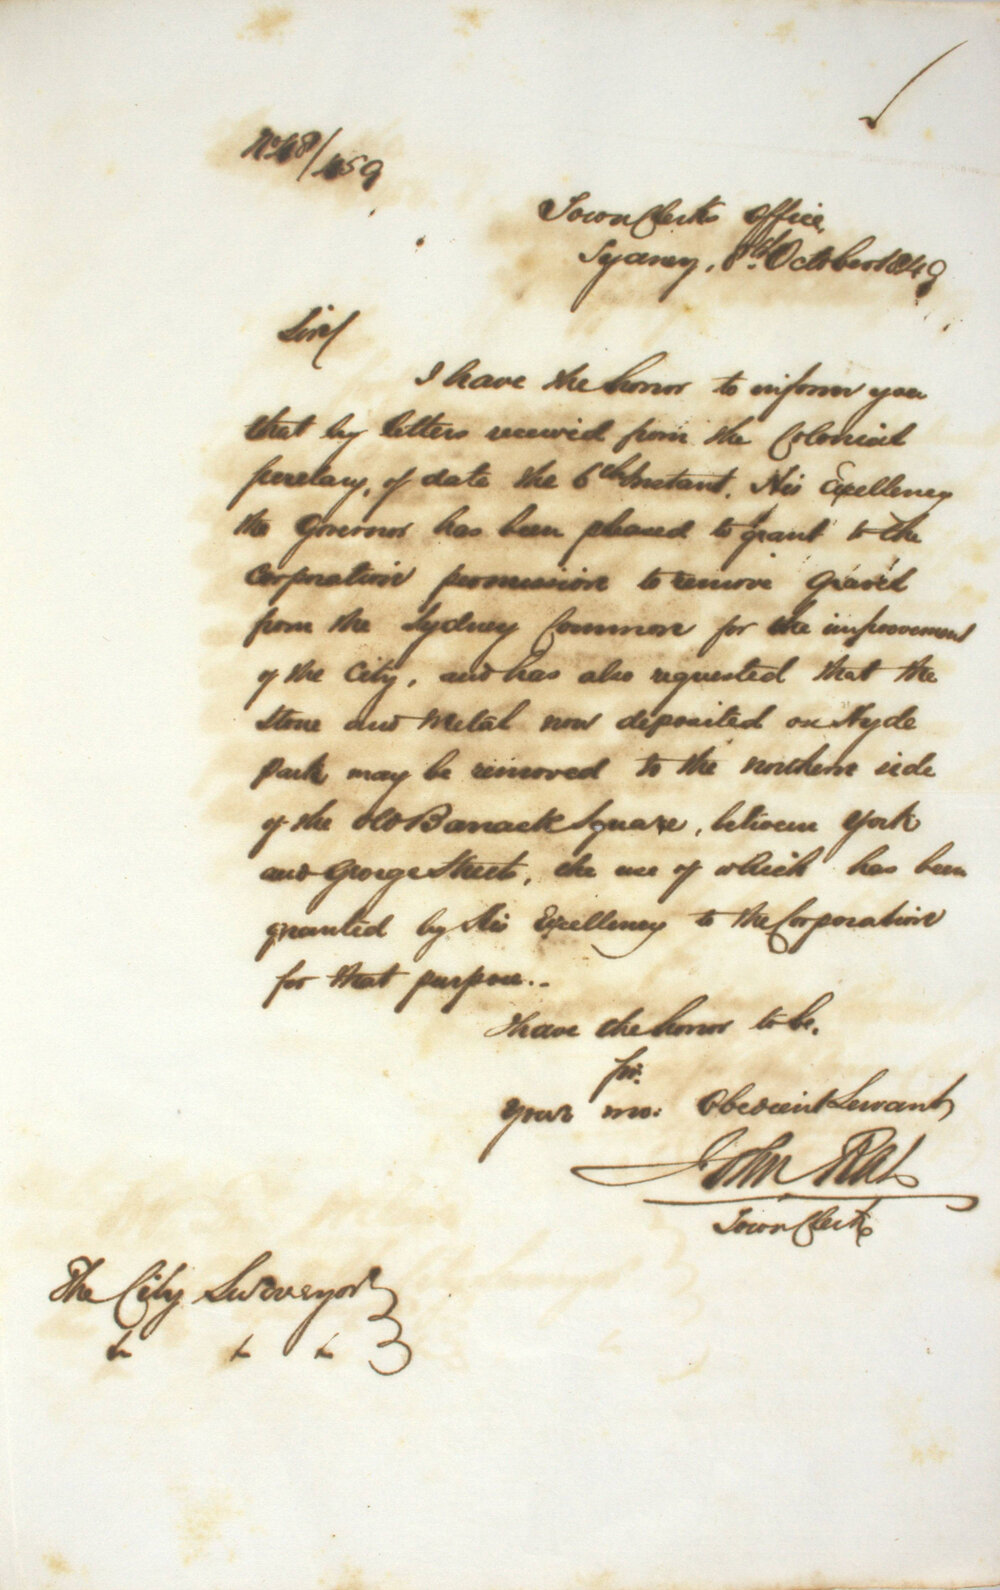 Town Clerks Office,
Sydney, 8th October 1849
Sir
I have the honor to inform you
that by letters received from the Colonial
Secretary, of date the 6th Instant, His Excellency
the Governor has been pleased to grant to the
Corporation permission to remove Gravel
from the Sydney Common for the improvement
of the City, and has also requested that the
Stone and Metal now deposited on Hyde
Park may be removed to the northern side
of the old Barrack Square, between York
and George Streets, the use of which has been
granted by His Excellency to the Corporation
for that purpose..
I have the honor to be,
Sir.
Your mo: Obedient Servant,
John Rae
Town Clerk
The City Surveyor